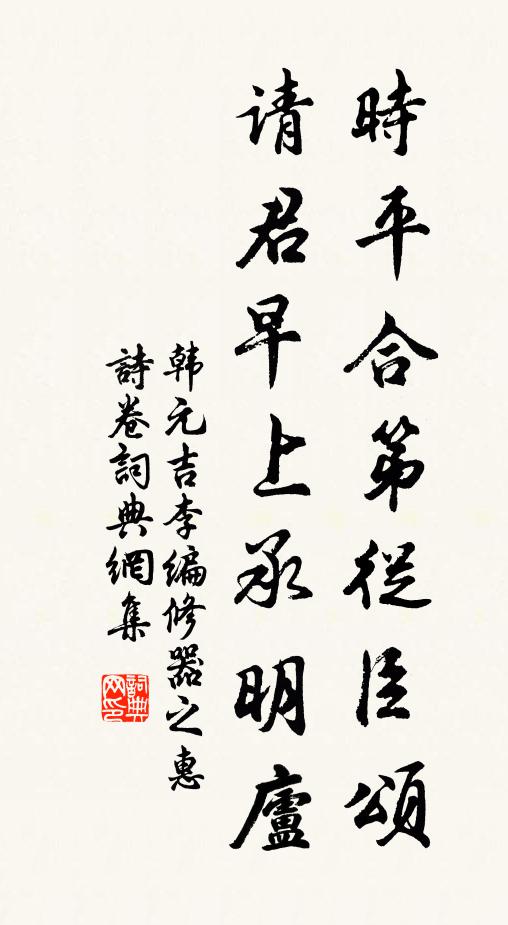 時平合第從臣頌
请君早上承明廬
韩元吉李編修器之惠
詩卷詞典網集
詞典
网印